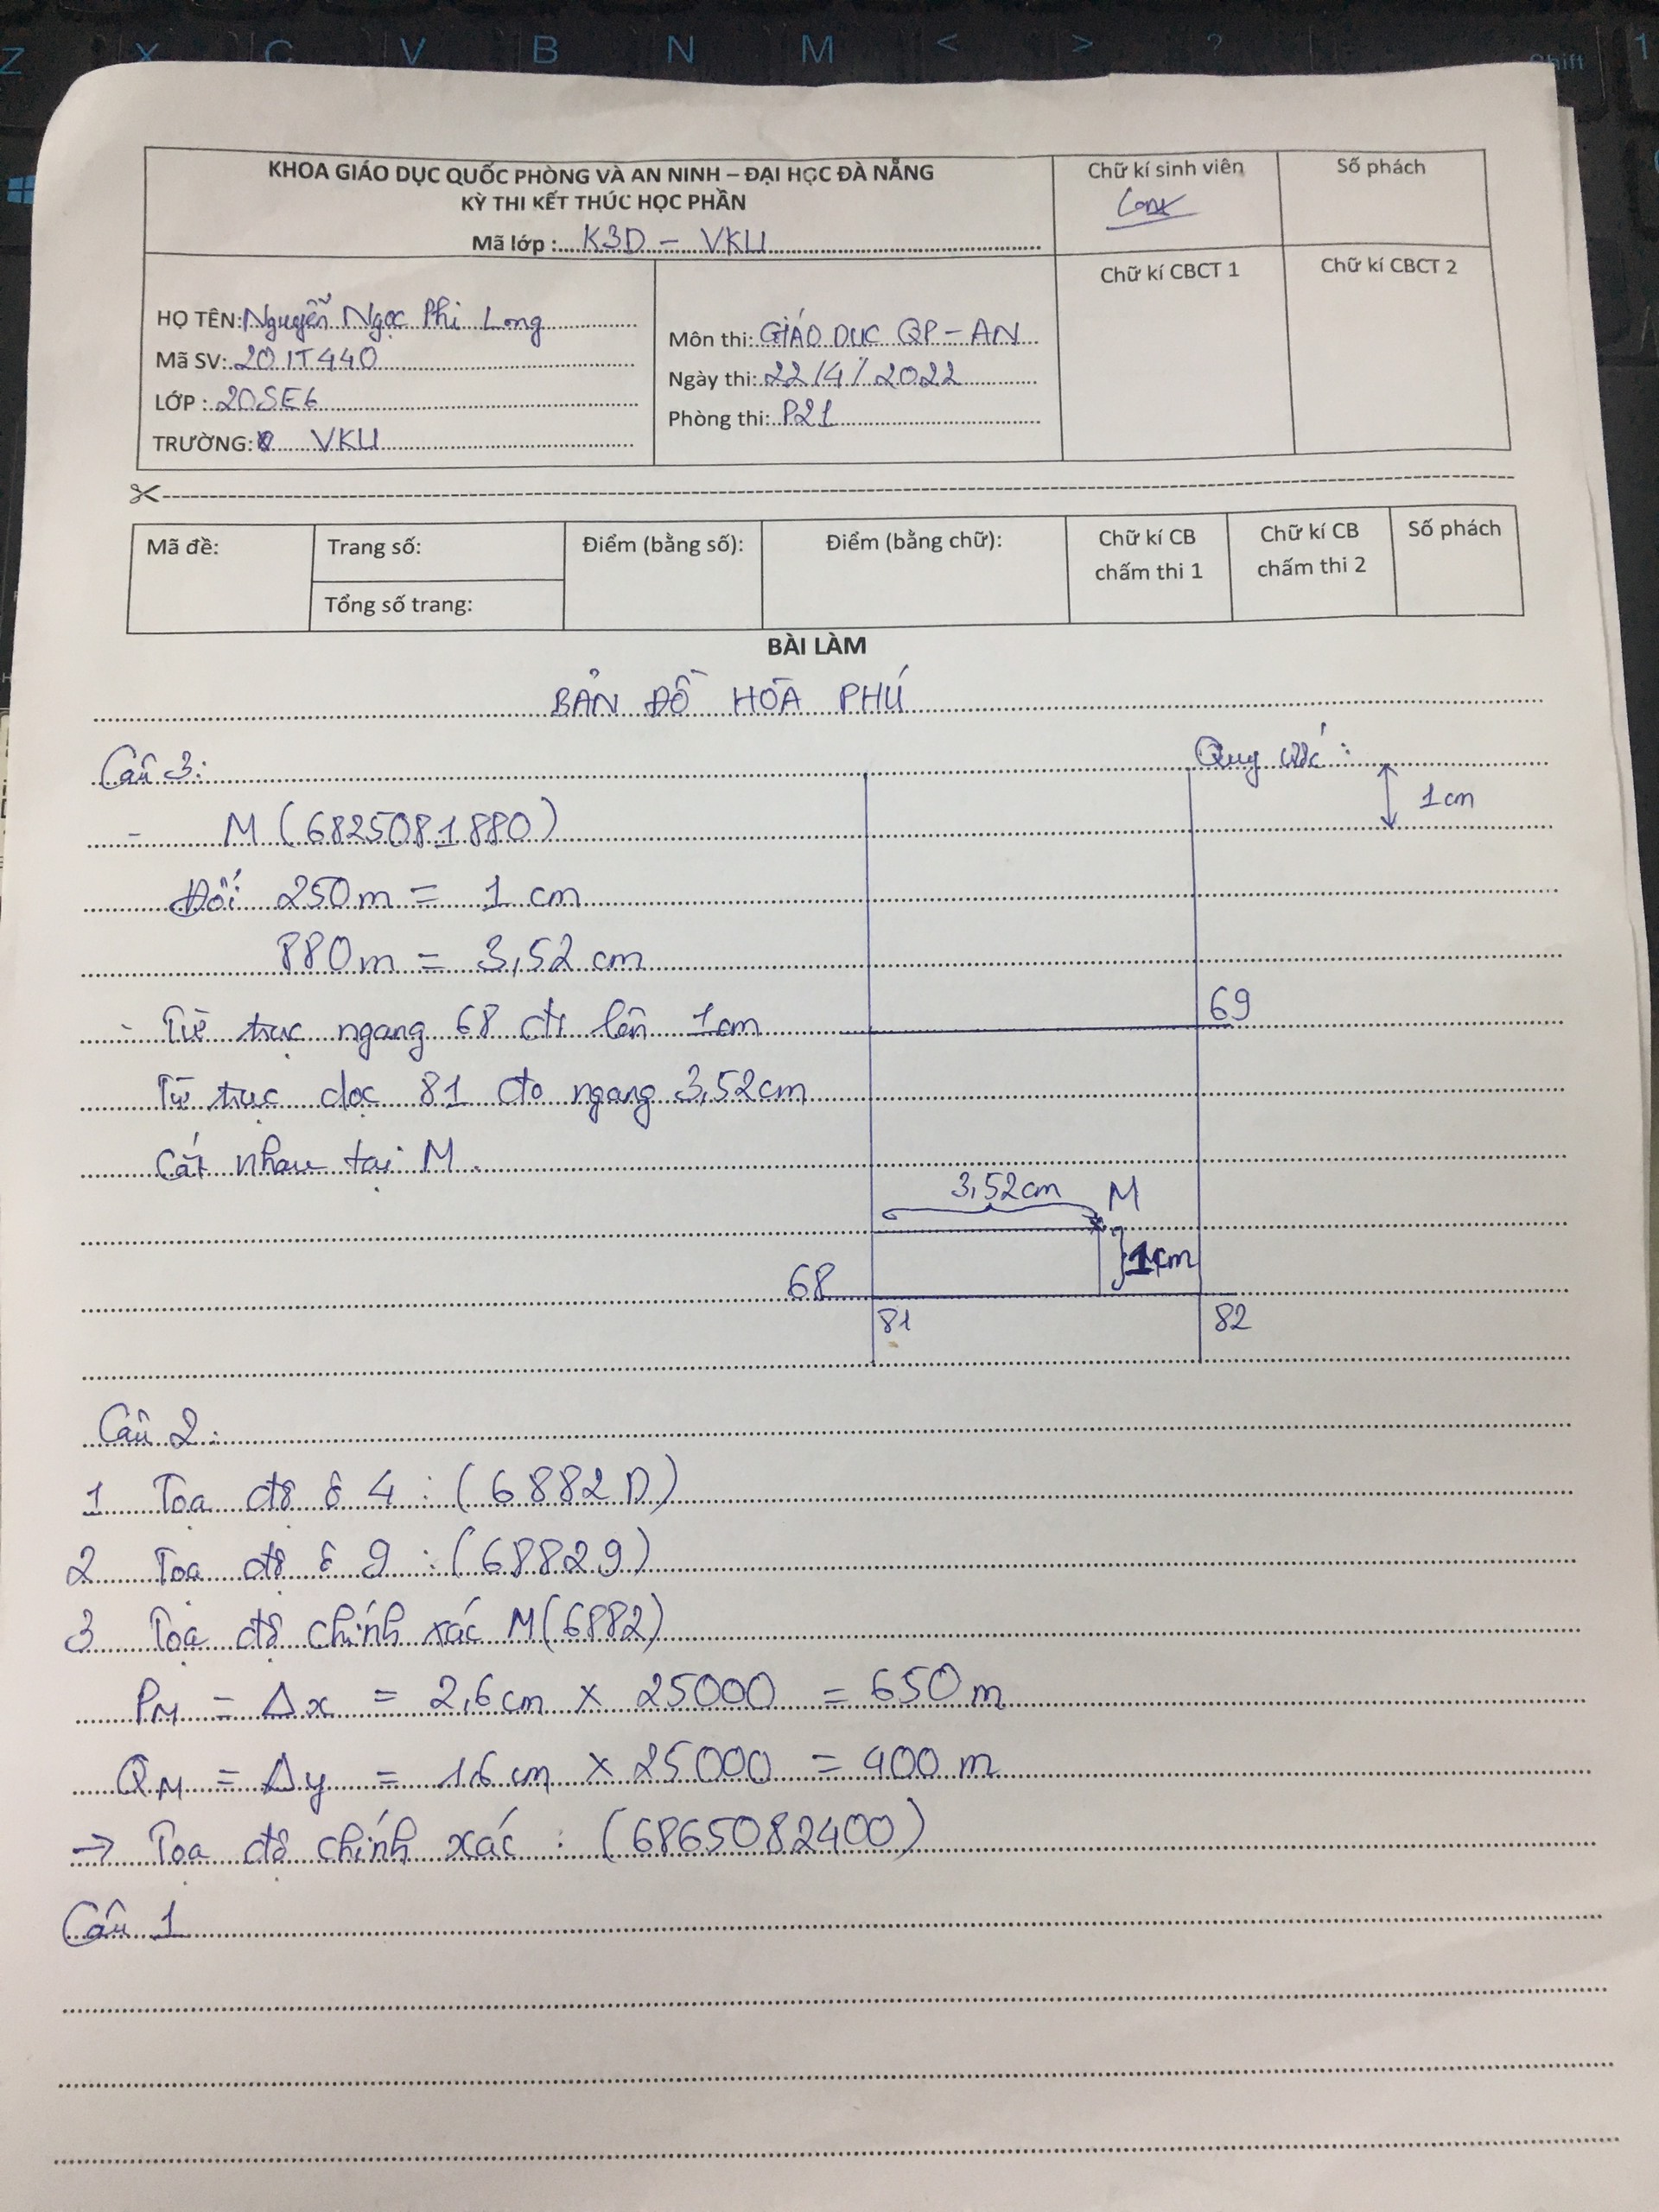 Z X C V B N M < > ? Shift
KHOA GIÁO DỤC QUỐC PHÒNG VÀ AN NINH – ĐẠI HỌC ĐÀ NẴNG
KỲ THI KẾT THÚC HỌC PHẦN
Mã lớp : K3D - VKU
Chữ kí sinh viên
Số phách
HỌ TÊN: Nguyễn Ngọc Phi Long
Mã SV: 20IT440
LỚP : 20SE6
TRƯỜNG: VKU
Môn thi: GIÁO DỤC QP - AN
Ngày thi: 22/4/2022
Phòng thi: P21
Chữ kí CBCT 1
Chữ kí CBCT 2
Mã đề:
Trang số:
Tổng số trang:
Điểm (bằng số):
Điểm (bằng chữ):
Chữ kí CB
chấm thi 1
Chữ kí CB
chấm thi 2
Số phách
BÀI LÀM
BẢN ĐỒ HÒA PHÚ
Câu 3:
Quy ước :
1cm
- M (6825081880)
Đổi 250m = 1 cm
880m = 3,52 cm
- Từ trục ngang 68 đi lên 1cm
69
Từ trục dọc 81 đo ngang 3,52cm
Cắt nhau tại M.
3,52cm M
1cm
68
81 82
Câu 2:
1 Tọa độ ô 4 : (6882D)
2 Tọa độ ô 9 : (68829)
3 Tọa độ chính xác M(6882)
PM = Δx = 2,6cm × 25000 = 650m
QM = Δy = 1,6 cm × 25000 = 400 m
→ Tọa độ chính xác : (6865082400)
Câu 1